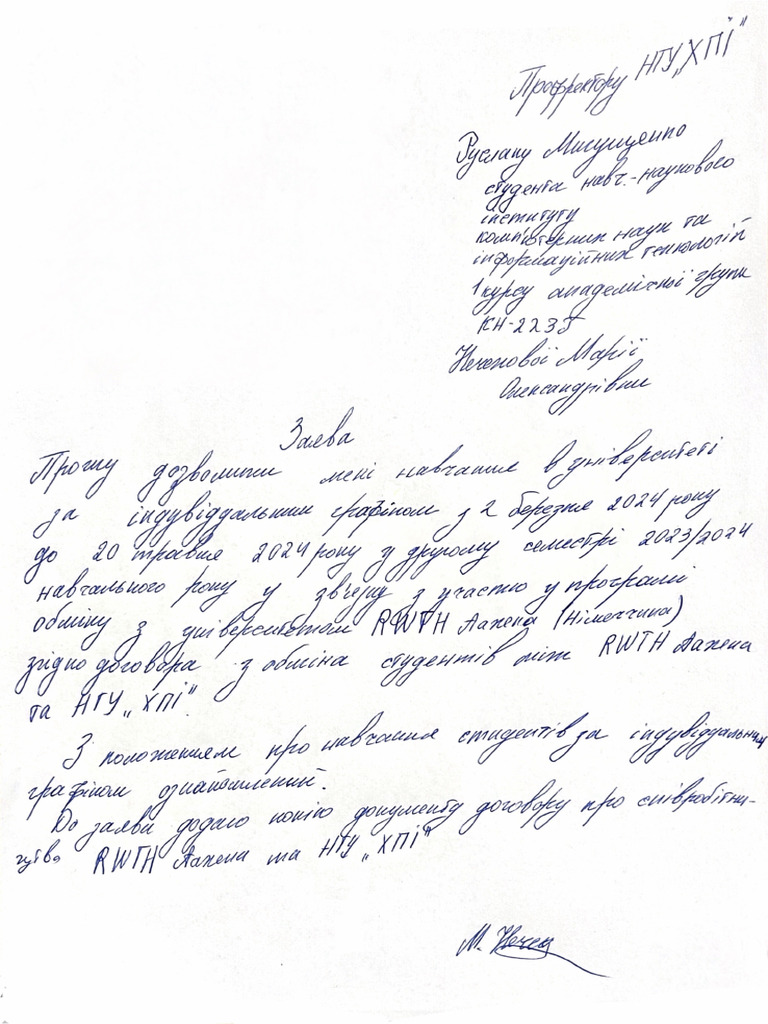 Проректору НТУ „ХПІ"
Руслану Мигущенко
студента навч.-наукового
інституту
комп'ютерних наук та
інформаційних технологій
1 курсу академічної групи
КН-223Б
Марії
Олександрівни
Заява
Прошу дозволити мені навчання в університеті
за індувіддальним графіком з 2 березня 2024 року
до 20 травня 2024 року у другому семестрі 2023/2024
навчального року у звʼязку з участю у програмі
обміну з університетом RWTH Аахена (Німеччина)
згідно договора з обміна студентів між RWTH Аахена
та НТУ „ХПІ".
З положенням про навчання студентів за індувіддальним
графіком ознайомлений.
До заяви додаю копію документу договору про співробітни-
цтво RWTH Аахена та НТУ „ХПІ"
М.